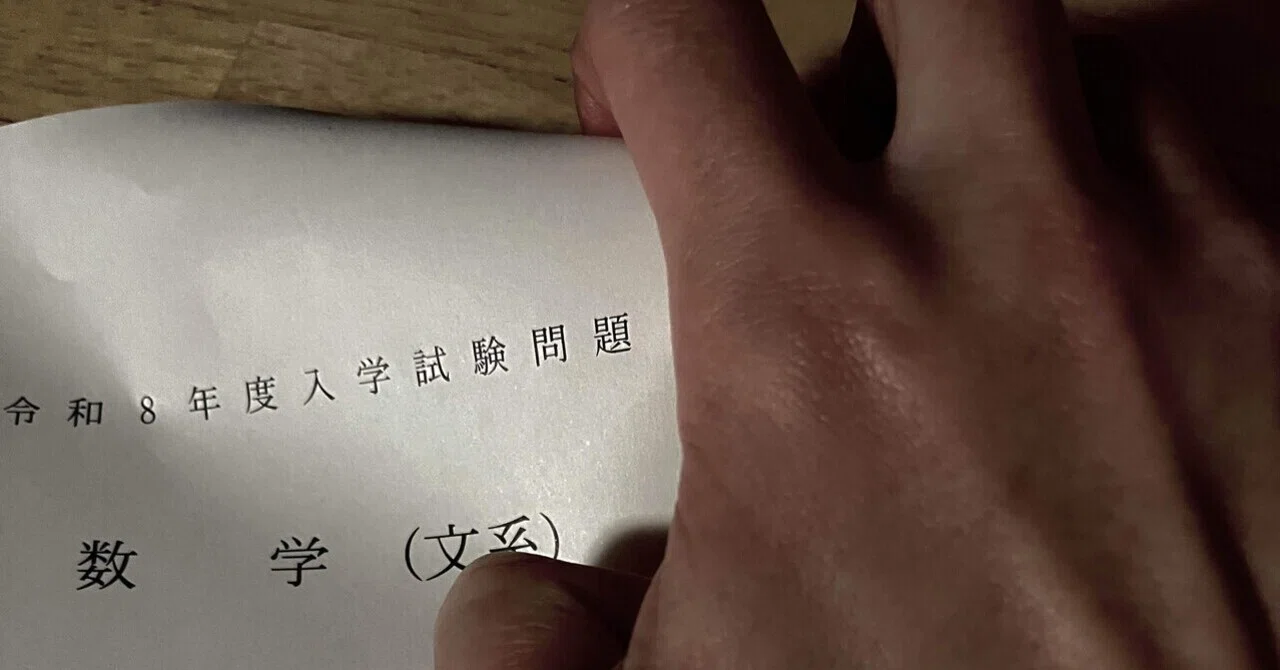 令和8年度入学試験問題
数学(文系)